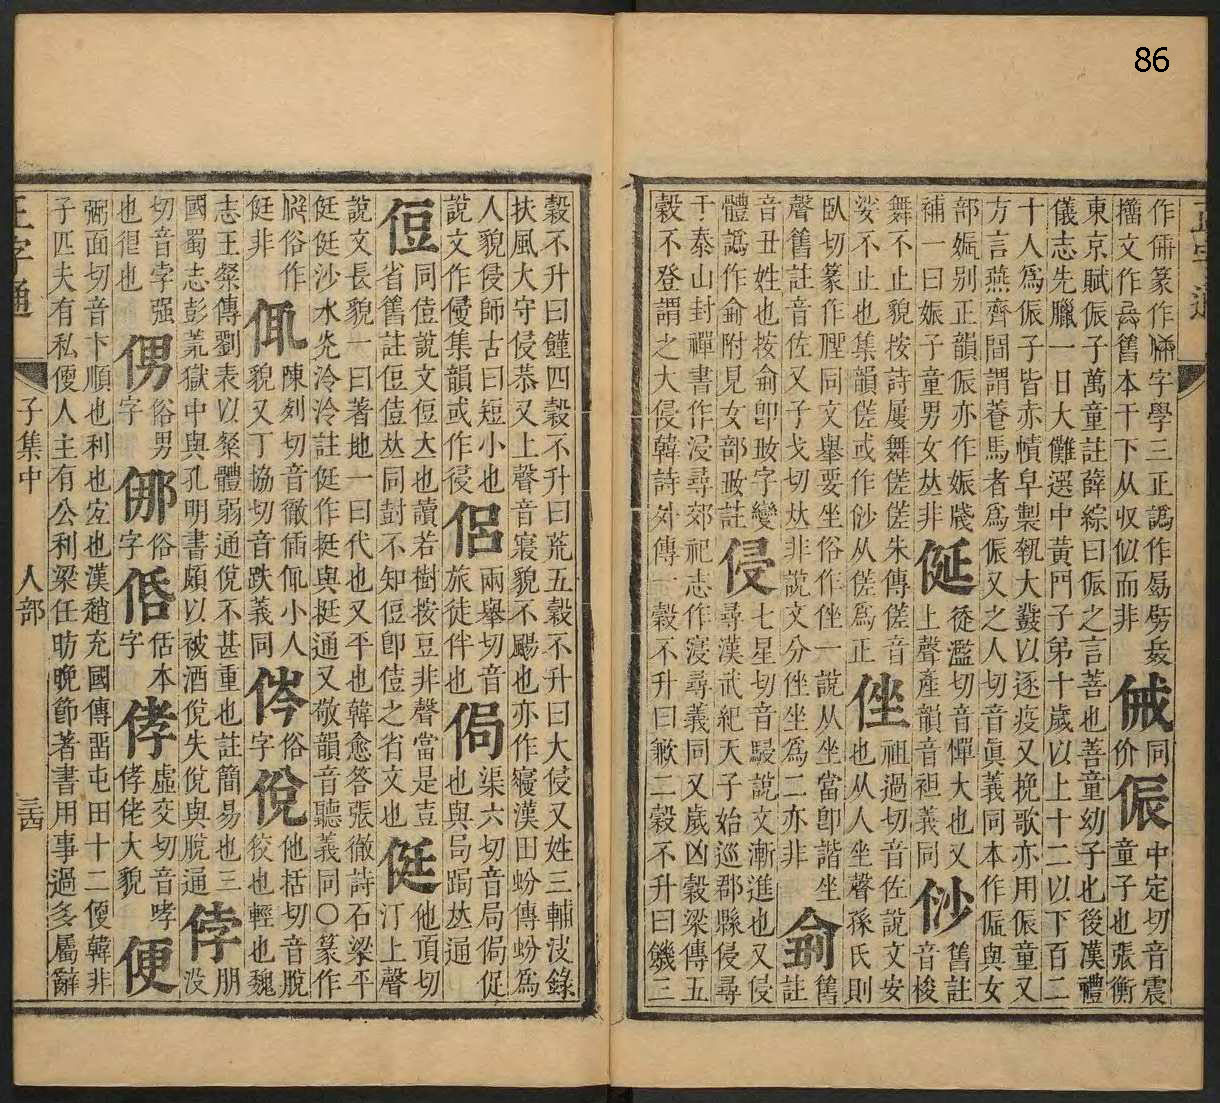 86
正字通
作篆作字學三正譌作
擂文作舊本干下从収似而非
㑘
同
价
侲
中定切音震
童子也張衡
東京賦侲子萬童註薛綜曰侲之言善也善童幼子也後漢禮
儀志先臘一日大儺選中黃門子弟十歲以上十二以下百二
十人爲侲子皆赤幘皁製執大鼗以逐疫又挽歌亦用侲童又
方言燕齊間謂養馬者爲侲又之人切音眞義同本作侲與女
部娠别正韻侲亦作娠牋
補一曰娠子童男女𠀤非
侹
徙濫切音憚大也又
上聲產韻音袒義同
仯
舊註
音梭
舞不止貌按詩屢舞傞傞朱傳傞音
娑不止也集韻傞或作仯从傞爲正
㑅
祖過切音佐說文安
也从人坐聲孫氏則
臥切篆作𦜝同文舉要坐俗作㑅一說从坐當卽諧坐
聲舊註音佐又子戈切𠀤非說文分㑅坐爲二亦非
㑪
舊
註
音丑姓也按㑪卽敃字變
體譌作㑪附見女部敃註
侵
七星切音駸說文漸進也又侵
尋漢武紀天子始巡郡縣侵尋
于泰山封禪書作浸尋郊祀志作寖尋義同又歲凶穀梁傳五
穀不登謂之大侵韓詩外傳一穀不升曰歉二穀不升曰饑三
穀不升曰饉四穀不升曰荒五穀不升曰大侵又姓三輔決錄
扶風大守侵恭又上聲音寢貌不颺也亦作寢漢田蚡傳蚡爲
人貌侵師古曰短小也
說文作㑴集韻或作浸
侶
兩舉切音
旅徒伴也
侷
渠六切音局侷促
也與局跼𠀤通
侸
同僖說文侸大也讀若樹按豆非聲當是壴
省舊註侸僖𠀤同封不知侸卽僖之省文也
侹
他頂切
汀上聲
說文長貌一曰著地一曰代也又平也韓愈答張徹詩石梁平
侹侹沙水光泠泠註侹作挺與挺通又敬韻音聽義同〇篆作
俗作
侹非
㑙
陳刻切音徹㑙小人
貌又丁協切音跌義同
㑤
俗
字
侻
他括切音脫
佼也輕也魏
志王粲傳劉表以粲體弱通侻不甚重也註簡易也三
國蜀志彭羕獄中與孔明書頗以被酒侻失侻與脫通
侼
朋
沒
切音孛强
也很也
俗男
字
俗
字
佸本
字
侾
虛交切音哮
侾佬大貌
便
弼面切音卞順也利也宜也漢趙充國傳留屯田十二便韓非
子匹夫有私便人主有公利梁任昉晚節著書用事過多屬辭
正字通
子集中
人部
三十四